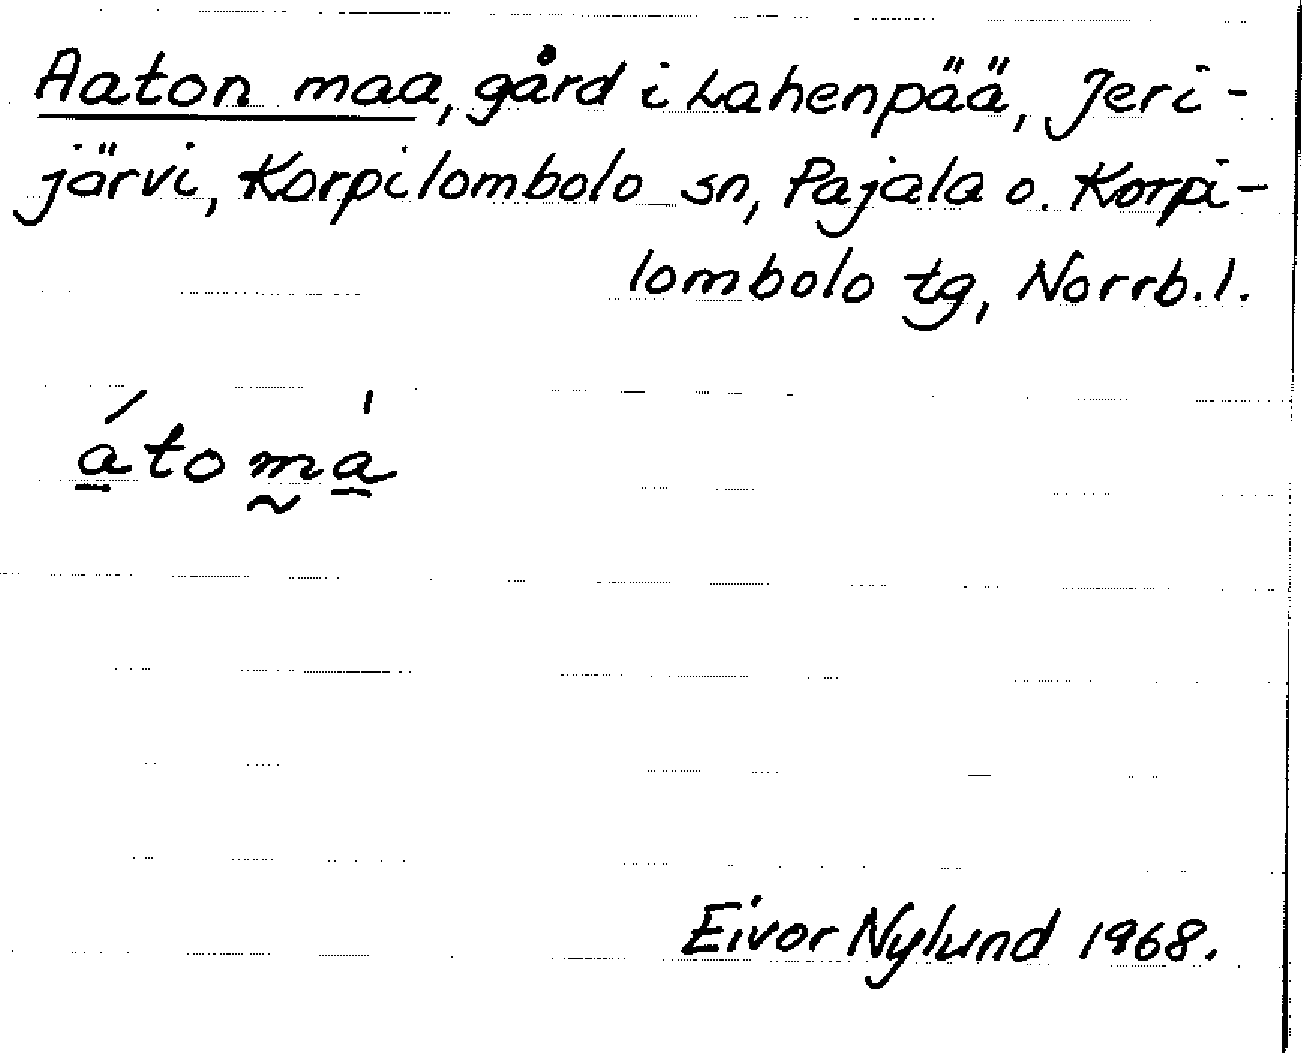 Aaton maa, gård i Lahenpää, Jeri-
järvi, Korpilombolo sn, Pajala o. Korpi-
lombolo tg, Norrb. l.
á̱to m̰a̱̍
Eivor Nylund 1968.